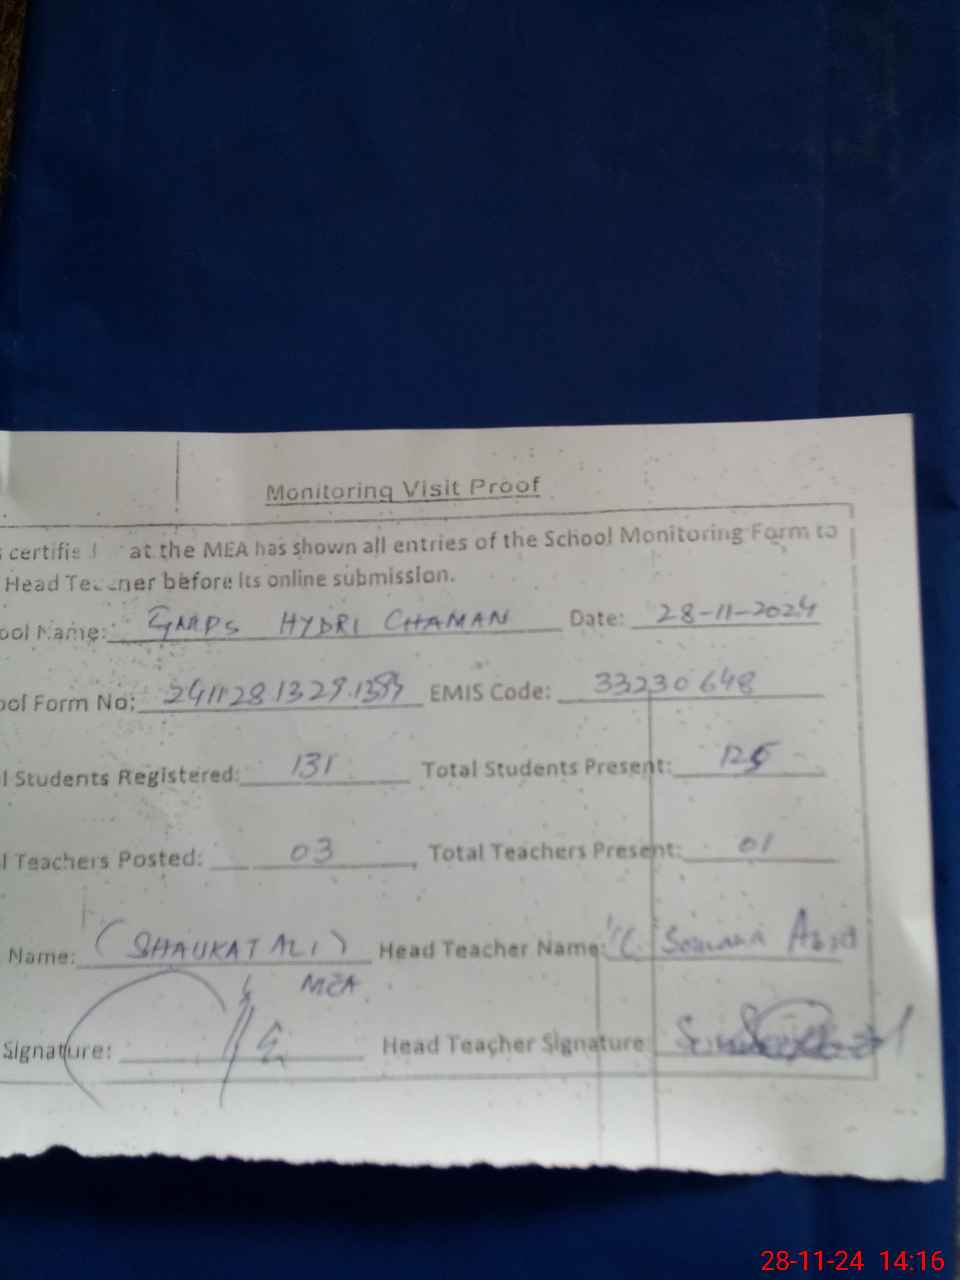 Monitoring Visit Proof
certifie at the MEA has shown all entries of the School Monitoring Form to
Head Teacner before its online submission.
ool Name: GMPS HYDRI CHAMAN Date: 28-11-2024
ool Form No: EMIS Code: 33230648
l Students Registered: 131 Total Students Present: 125
l Teachers Posted: 03 Total Teachers Present: 01
Name: (SHAUKAT ALI) Head Teacher Name:
MEA
Signature: Head Teacher Signature
28-11-24 14:16